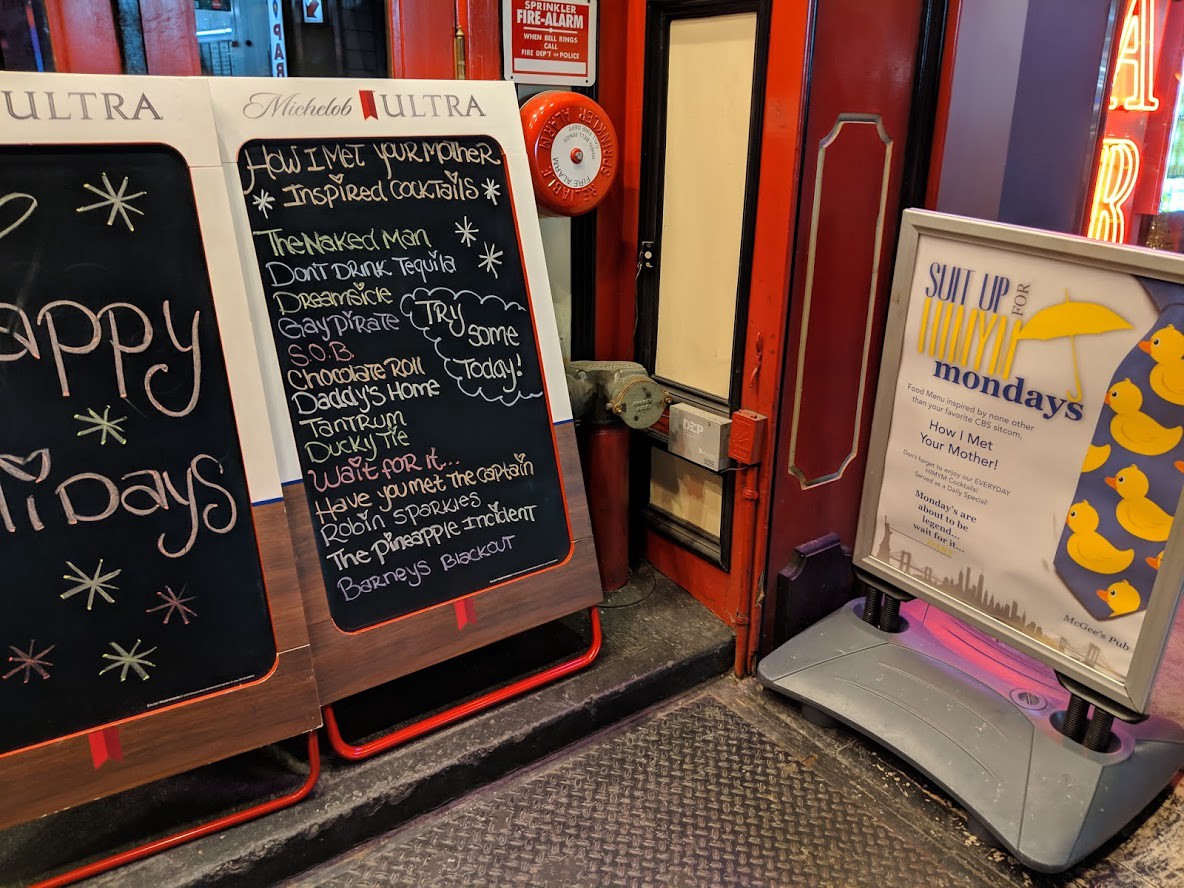 ULTRA
appy
lidays
Michelob ULTRA
How I Met Your Mother
Inspired Cocktails
The Naked Man
Don't Drink Tequila
Dreamsicle
Gay Pirate
S.O.B.
Chocolate Roll
Daddy's Home
Tantrum
Ducky Tie
Wait for it...
Have you met the captain
Robin Sparkles
The Pineapple Incident
Barneys Blackout
Try
some
Today!
SPRINKLER
FIRE-ALARM
WHEN BELL RINGS
CALL
FIRE DEP'T OR POLICE
RELIABLE
SPRINKLER ALARM
FIRE ALARM
SUIT UP FOR
HIMYM
mondays
Food Menu inspired by none other
than your favorite CBS sitcom,
How I Met
Your Mother!
Don't forget to enjoy our EVERYDAY
HIMYM Cocktails!
Served as a Daily Special!
Monday's are
about to be
legend...
wait for it...
McGee's Pub
A
R